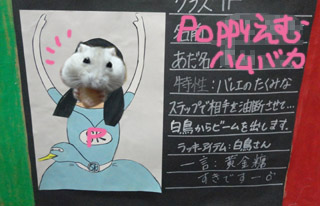 クラス 1F
名前 Poppyえむ
あだ名 ハムバカ
特性：バレエのたくみな
ステップで相手を油断させて…
白鳥からビームを出します。
ラッキーアイテム：白鳥さん
一言：黄金糖